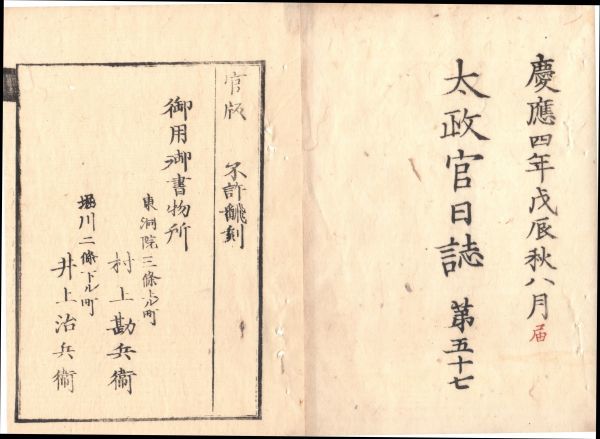 慶應四年戊辰秋八月 届
太政官日誌 第五十七
官版 不許飜刻
御用御書物所
東洞院三條上ル町
村上勘兵衛
堀川二條下ル町
井上治兵衛